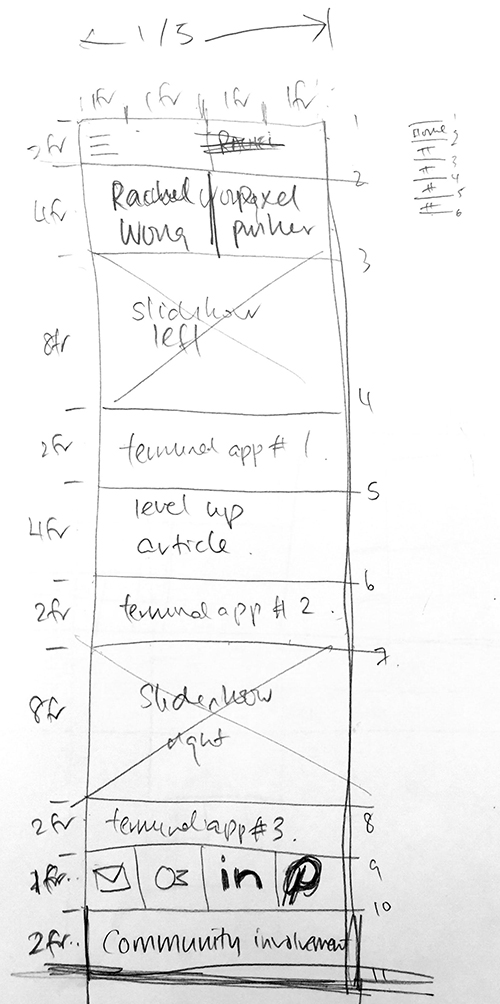 1/5
1fr 1fr 1fr 1fr
1
2fr
Home
2
3
4
5
6
2
4fr
Rachel
Wong
pixel
pusher
3
8fr
slideshow
left
4
2fr
terminal app # 1.
5
4fr
level up
article.
6
2fr
terminal app # 2.
7.
8fr
Slideshow
right
8
2fr
terminal app # 3.
9
1fr..
in
10
2fr..
Community involvement
11